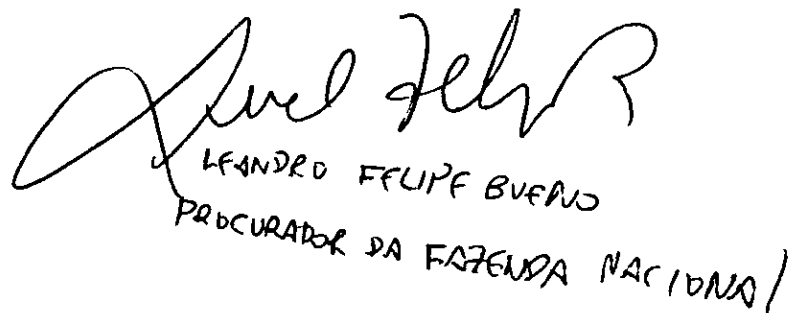 LEANDRO FELIPE BUENO
PROCURADOR DA FAZENDA NACIONAL